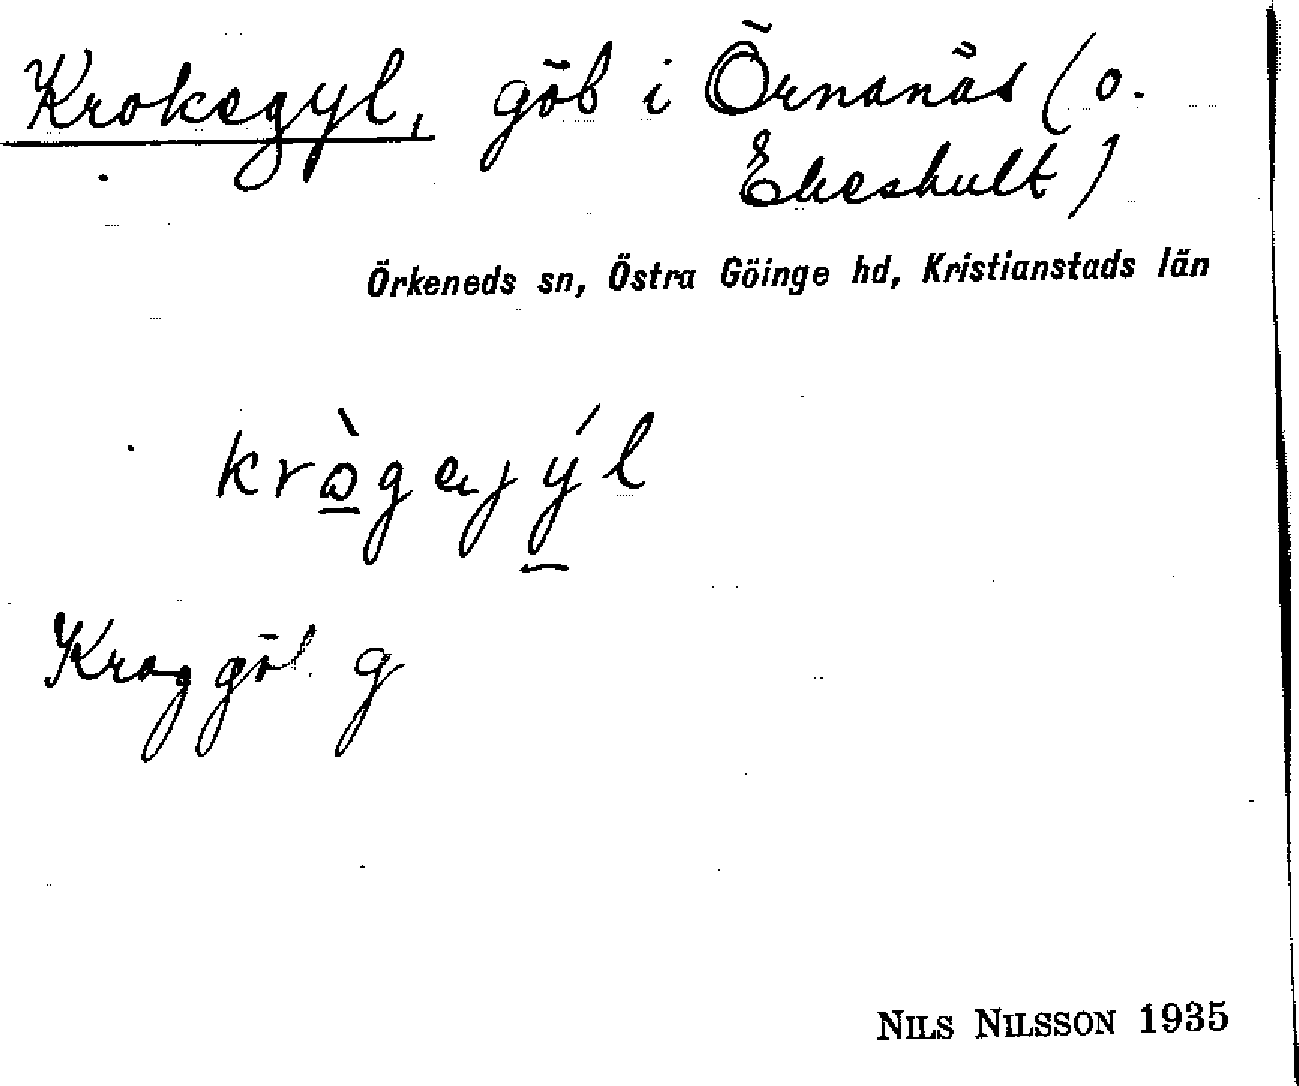 Krokegyl, göl i Örnanäs (o.
Ekeshult)
Örkeneds sn, Östra Göinge hd, Kristianstads län
krògejýl
Kroggöl g
NILS NILSSON 1935